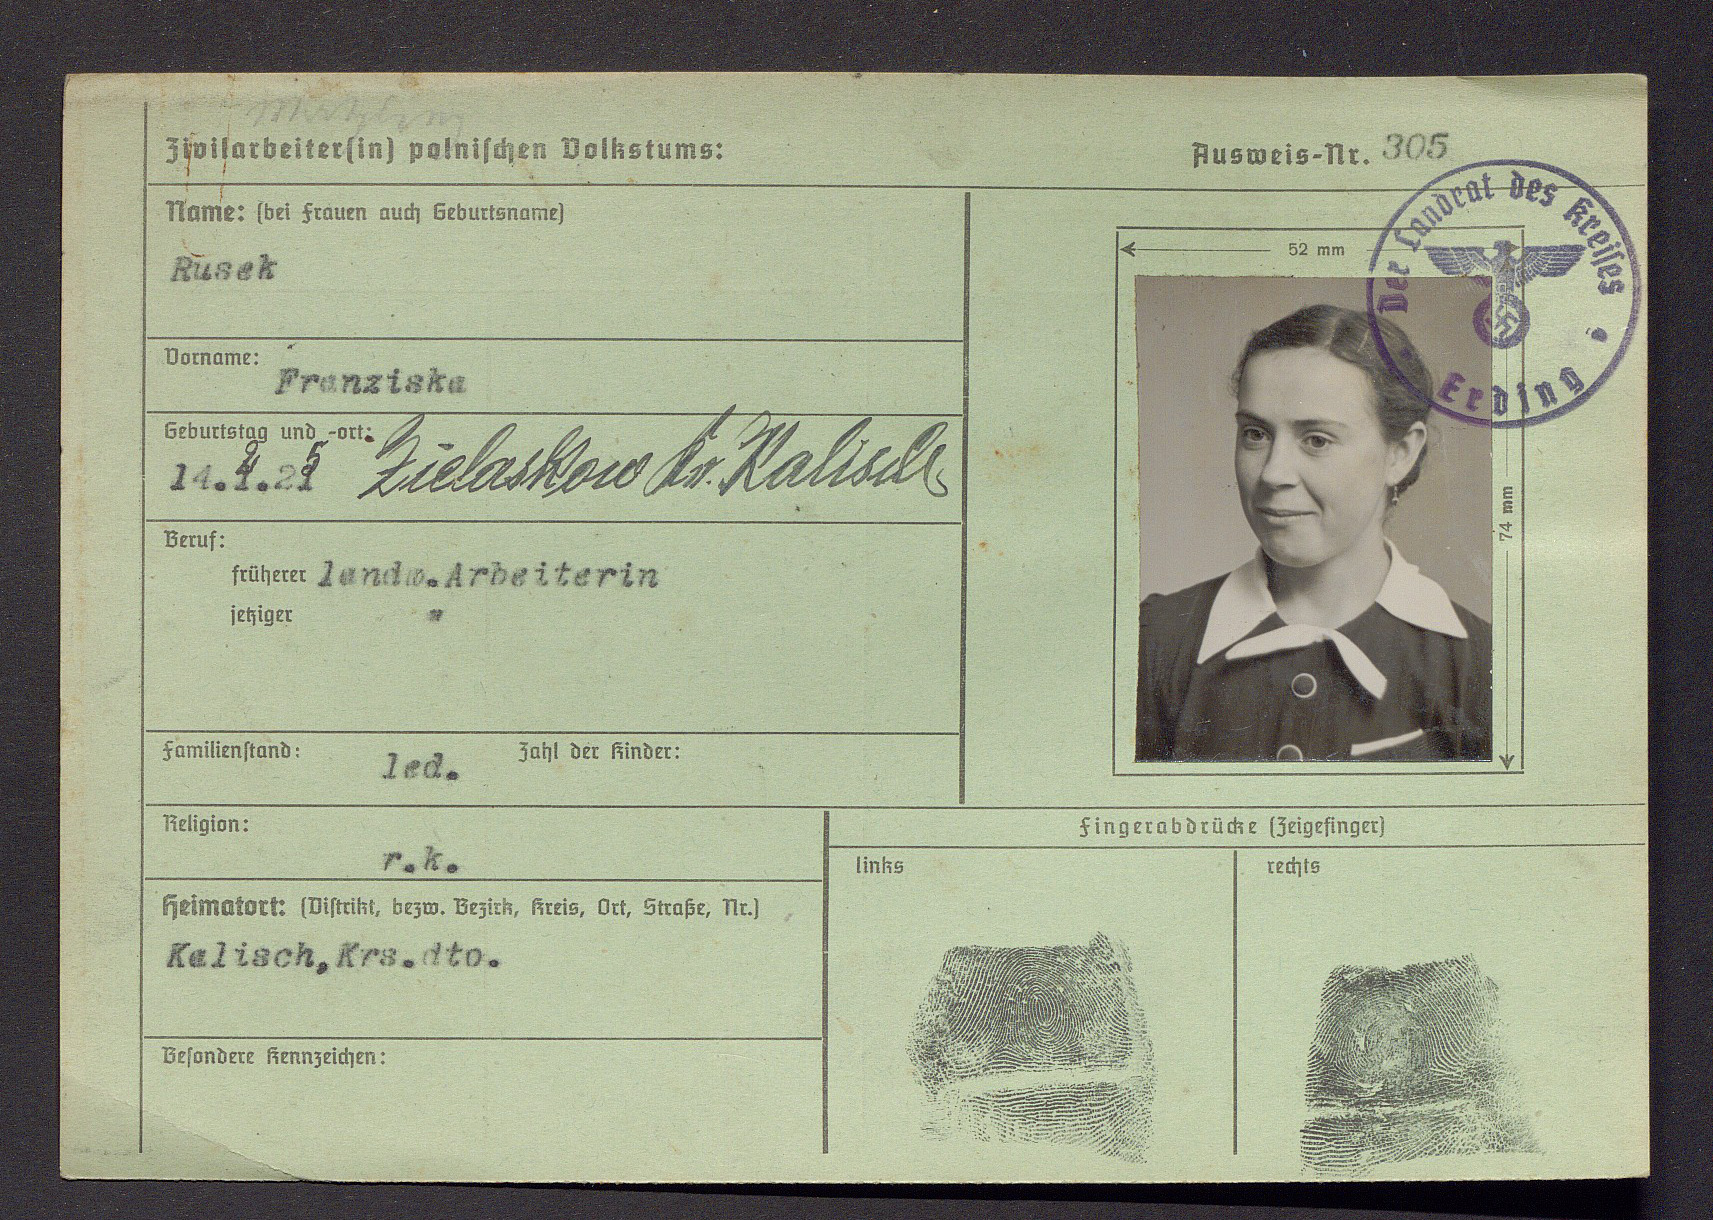 Zivilarbeiter(in) polnischen Volkstums:
Ausweis-Nr. 305
Name: (bei Frauen auch Geburtsname)
Rusek
Vorname:
Franziska
Geburtstag und -ort:
14. Zielaskow Kr. Kalisch
Beruf:
früherer landw. Arbeiterin
jetziger "
Familienstand: led. Zahl der Kinder:
Religion:
r.k.
Heimatort: (Distrikt, bezw. Bezirk, Kreis, Ort, Straße, Nr.)
Kalisch, Krs. dto.
Besondere Kennzeichen:
52 mm
74 mm
Der Landrat des Kreises
Erding
Fingerabdrücke (Zeigefinger)
links
rechts